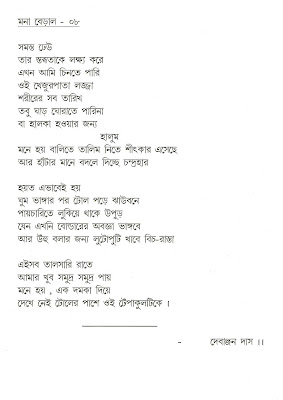 মনা বেড়াল - ০৮
সমস্ত ঢেউ
তার স্তব্ধতাকে লক্ষ্য করে
এখন আমি চিনতে পারি
ওই খেজুরপাতা লজ্জা
শরীরের সব তারিখ
তবু ঘাড় ঘোরাতে পারিনা
বা হালকা হওয়ার জন্য
হালুম
মনে হয় বালিতে তালিম নিতে শীৎকার এসেছে
আর হাঁটার মানে বদলে দিচ্ছে চন্দ্রহার
হয়ত এভাবেই হয়
ঘুম ভাঙ্গার পর টোল পড়ে ঝাউবনে
পায়চারিতে লুকিয়ে থাকে উপুড়
যেন এখনি বোল্ডারের অবজ্ঞা ভাঙ্গবে
আর উহু বলার জন্য লুটোপুটি খাবে বিচ-রাস্তা
এইসব তালসারি রাতে
আমার খুব সমুদ্র সমুদ্র পায়
মনে হয় , এক দমকা দিয়ে
দেখে নেই টোলের পাশে ওই টেপাকুলটিকে ।
- দেবাঞ্জন দাস ।।